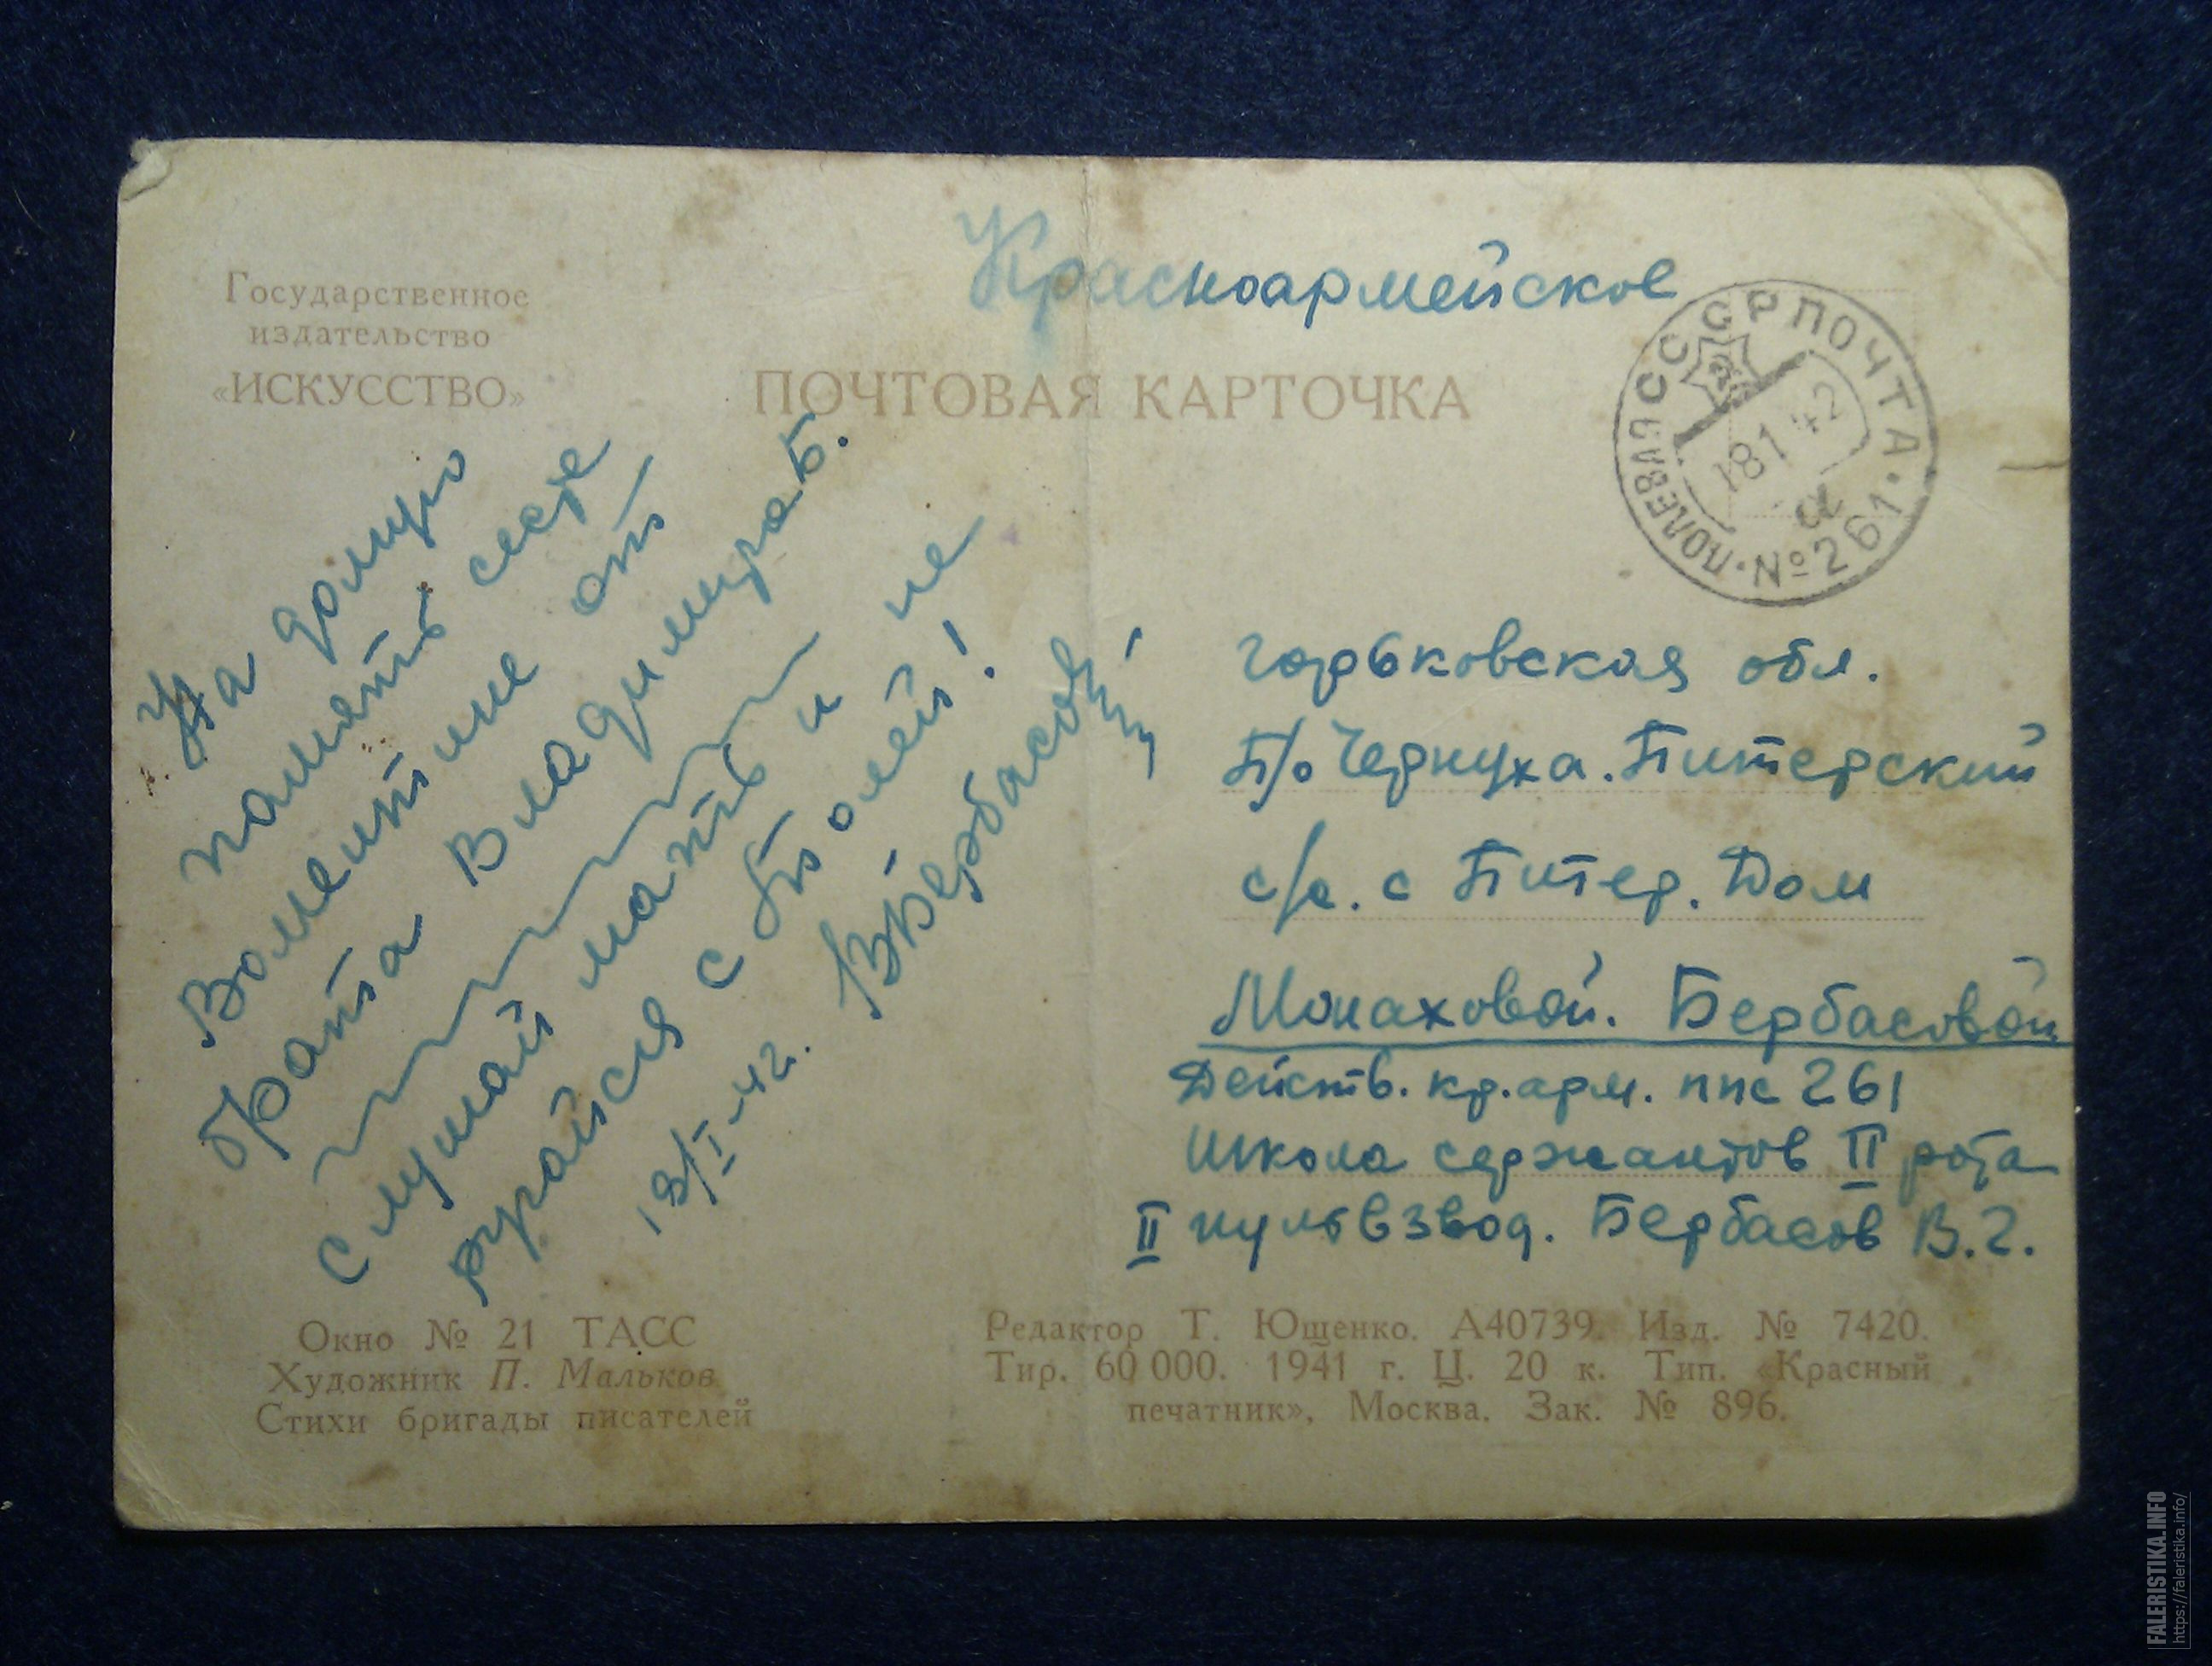 Государственное
издательство
«ИСКУССТВО»
Красноармейское
ПОЧТОВАЯ КАРТОЧКА
СССР ПОЧТА
ПОЛЕВАЯ
18 1 42
а
№ 261
На долгую
память сестре
Валентине от
брата Владимира Б.
Слушай мать и не
ругайся с Толей!
18/I-42г. ВБербасов
Горьковская обл.
П/о Чернуха. Питерский
с/с. с Питер. Дом
Монаховой. Бербасовой
Действ. кр. арм. ппс 261
Школа сержантов II рота
II пульвзвод. Бербасов В.Г.
Окно № 21 ТАСС
Художник П. Мальков
Стихи бригады писателей
Редактор Т. Ющенко. А40739. Изд. № 7420.
Тир. 60 000. 1941 г. Ц. 20 к. Тип. «Красный
печатник», Москва. Зак. № 896.
FALERISTIKA.INFO
https://faleristika.info/